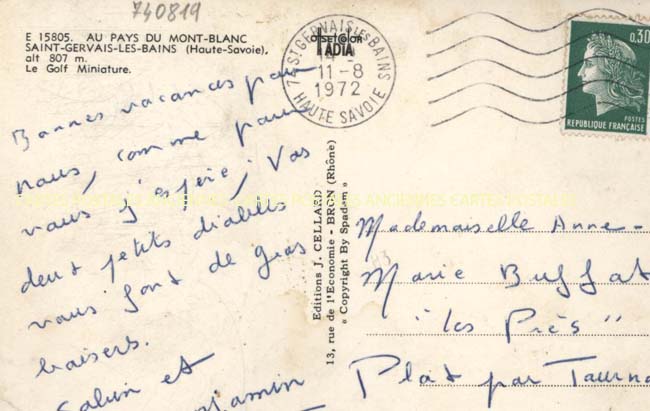 740819
E 15805. AU PAYS DU MONT-BLANC
SAINT-GERVAIS-LES-BAINS (Haute-Savoie),
alt 807 m.
Le Golf Miniature.
Bonnes vacances pour
nous, comme pour
vous j'espère! Vos
deux petits diables
vous font de gros
baisers.
et
OFFSETCOLOR
IADIA
74 ST GERVAIS LES BAINS
11-8
1972
HAUTE SAVOIE
0,30
POSTES
REPUBLIQUE FRANÇAISE
Editions J. CELLARD
13, rue de l'Economie - BRON (Rhône)
« Copyright By Spadem »
Mademoiselle Anne-
Marie Buffat
"Les Prés"
Plat par